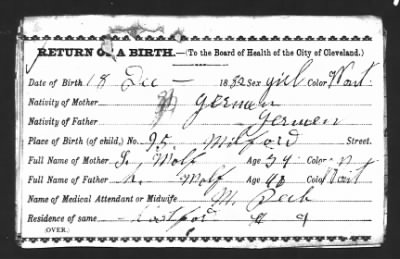 RETURN OF A BIRTH.—(To the Board of Health of the City of Cleveland.)
Date of Birth 18 Dec — 1882 Sex girl Color Wait
Nativity of Mother german
Nativity of Father germen
Place of Birth (of child,) No. 95 Milford Street.
Full Name of Mother S. Wolf Age 34 Color
Full Name of Father Wolf Age Color Wait
Name of Medical Attendant or Midwife M. Peck
Residence of same
OVER.